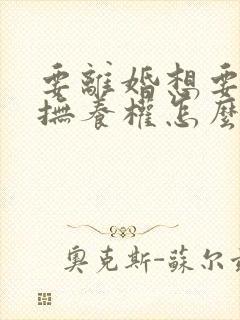 要離婚想要
撫養權怎麼
奧克斯-蘇尔